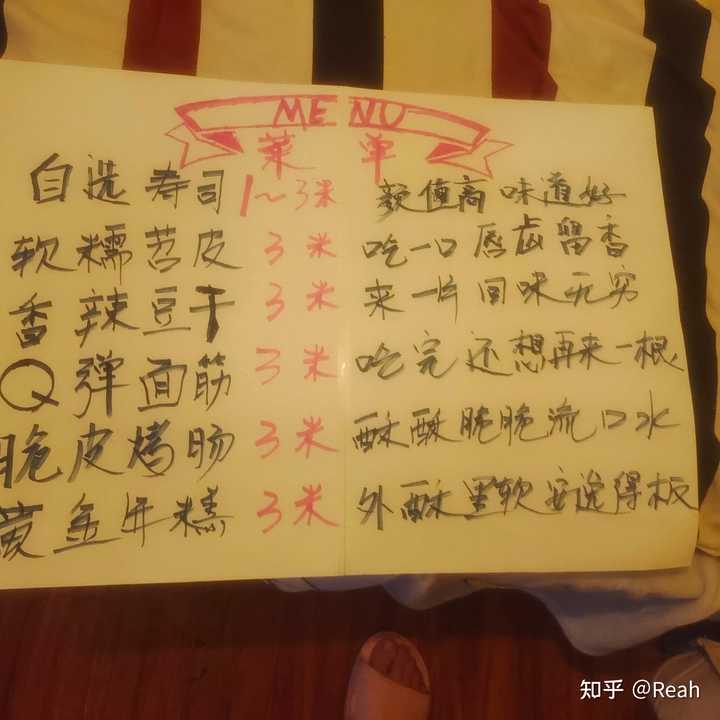 MENU
菜单
自选寿司 1~3米 颜值高 味道好
软糯苕皮 3米 吃一口唇齿留香
香辣豆干 3米 来一片回味无穷
Q弹面筋 3米 吃完还想再来一根
脆皮烤肠 3米 酥酥脆脆流口水
黄金年糕 3米 外酥里软安逸得板
知乎 @Reah